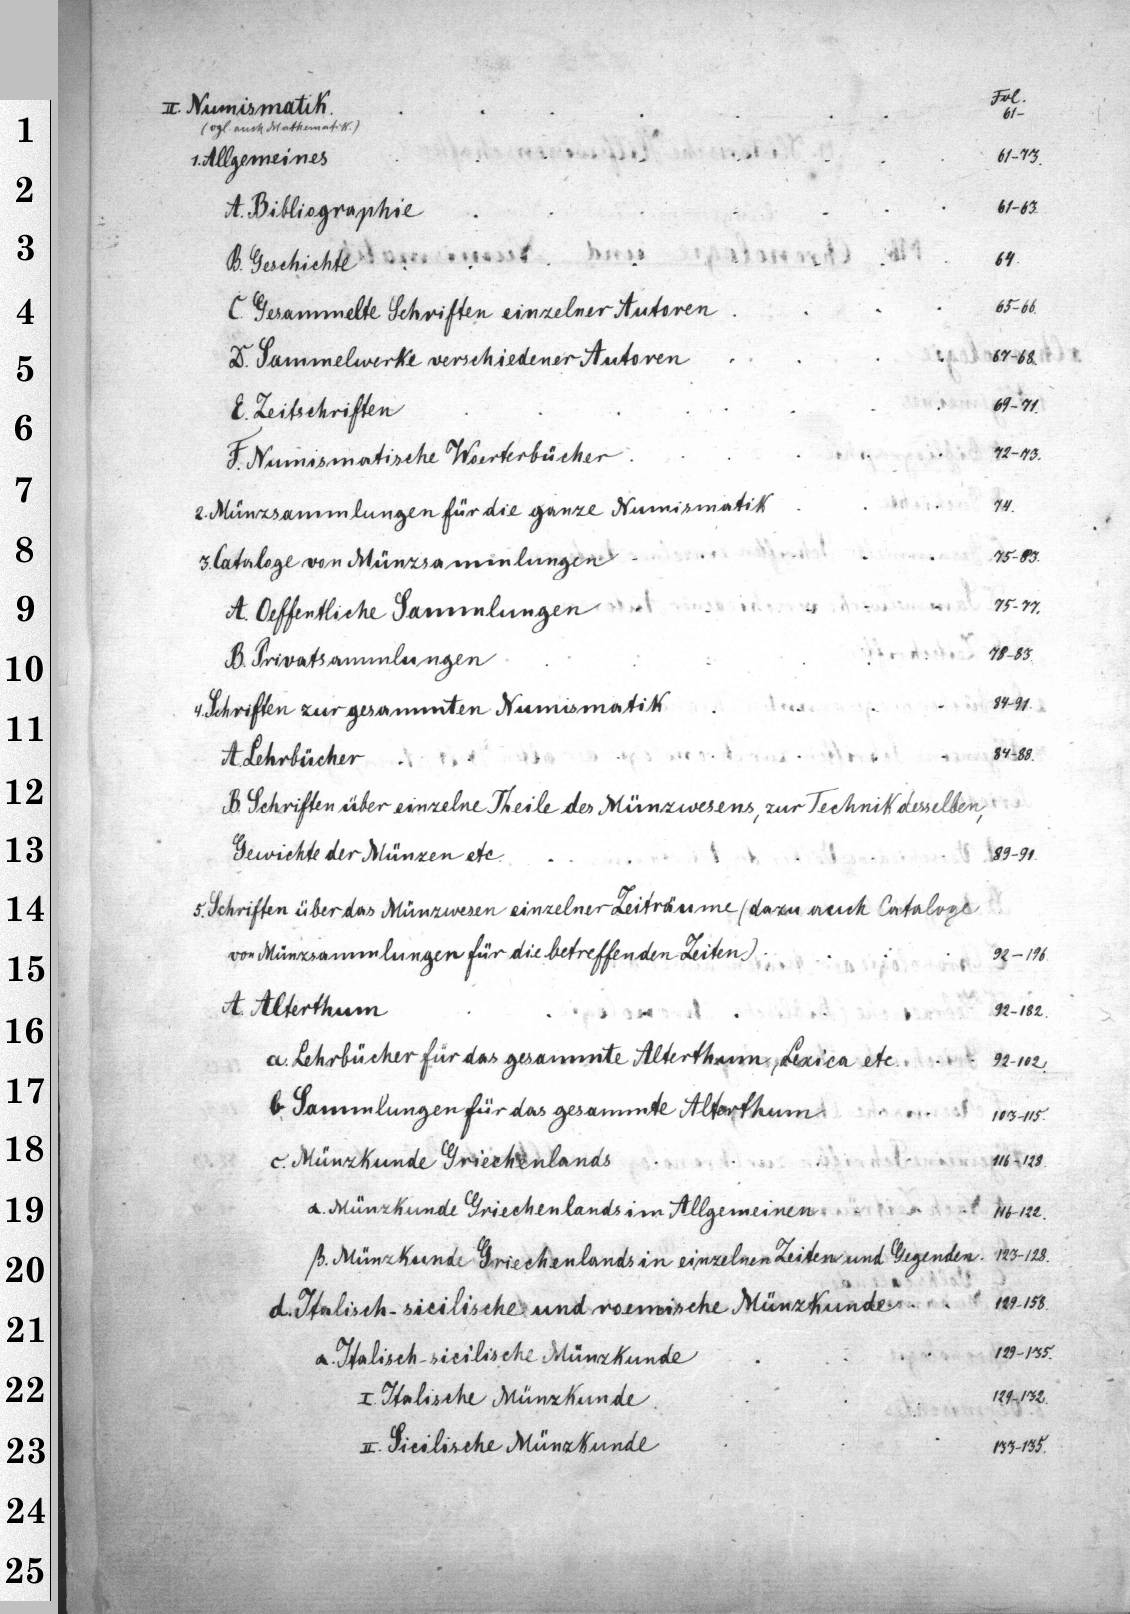 II. Numismatik. Fol. 61-
(vgl. auch Mathematik.)
1. Allgemeines 61-73.
A. Bibliographie 61-63.
B. Geschichte 64.
C. Gesammelte Schriften einzelner Autoren 65-66.
D. Sammelwerke verschiedener Autoren 67-68.
E. Zeitschriften 69-71.
F. Numismatische Woerterbücher 72-73.
2. Münzsammlungen für die ganze Numismatik 74.
3. Cataloge von Münzsammlungen 75-83.
A. Oeffentliche Sammlungen 75-77.
B. Privatsammlungen 78-83.
4. Schriften zur gesammten Numismatik 84-91.
A. Lehrbücher 84-88.
B. Schriften über einzelne Theile des Münzwesens, zur Technik desselben,
Gewichte der Münzen etc. 89-91.
5. Schriften über das Münzwesen einzelner Zeiträume (dazu auch Cataloge
von Münzsammlungen für die betreffenden Zeiten) 92-196.
A. Alterthum 92-182.
a. Lehrbücher für das gesammte Alterthum, Lexica etc. 92-102.
b. Sammlungen für das gesammte Alterthum 103-115.
c. Münzkunde Griechenlands 116-128.
α. Münzkunde Griechenlands im Allgemeinen 116-122.
β. Münzkunde Griechenlands in einzelnen Zeiten und Gegenden. 123-128.
d. Italisch-sicilische und roemische Münzkunde 129-158.
α. Italisch-sicilische Münzkunde 129-135.
I. Italische Münzkunde 129-132.
II. Sicilische Münzkunde 133-135.
1
2
3
4
5
6
7
8
9
10
11
12
13
14
15
16
17
18
19
20
21
22
23
24
25